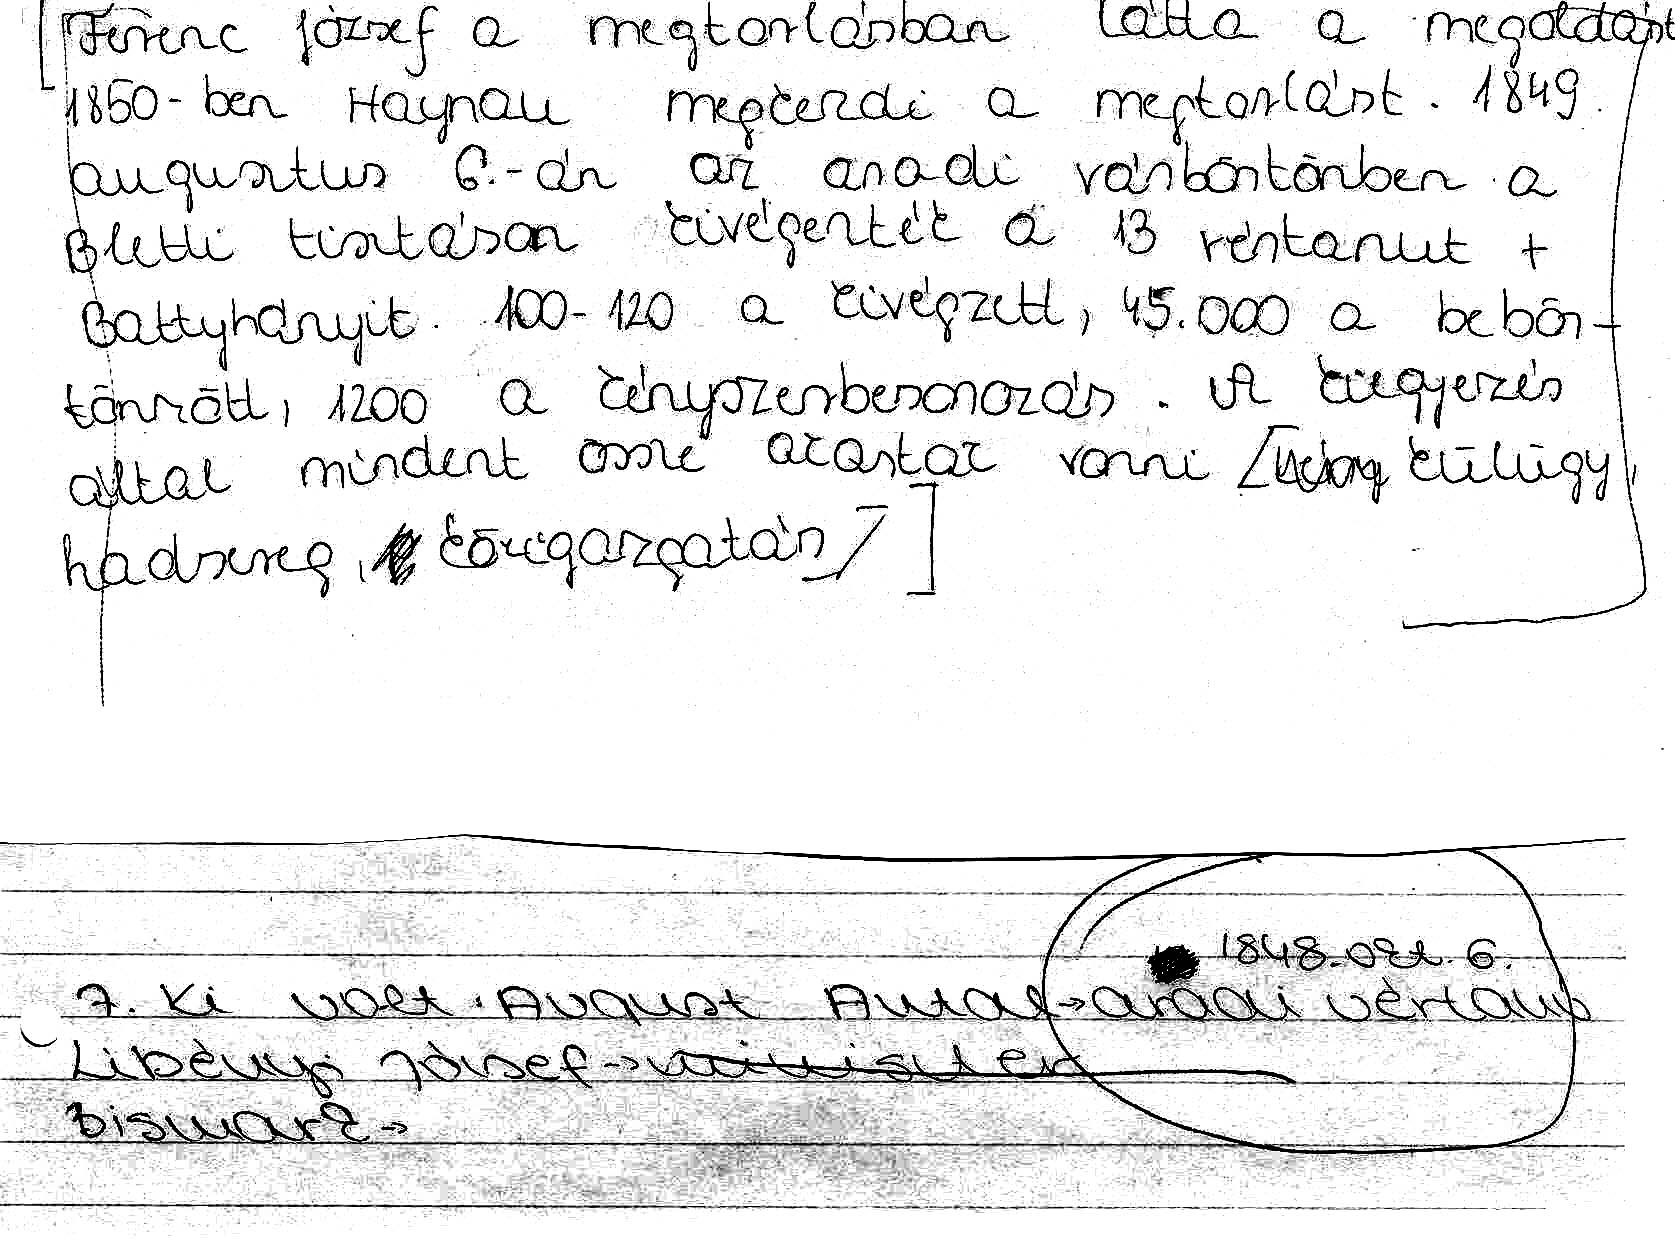 Ferenc József a megtorlásban látta a megoldást
1850-ben Haynau megkezdi a megtorlást. 1849.
augusztus 6.-án az aradi várbörtönben a
tisztáson kivégezték a 13 vértanut +
Battyhányit. 100-120 a kivégzett, 45.000 a bebör-
tönzött, 1200 a kényszerbesorozás. A kiegyezés
által mindent össze akartak vonni [ külügy,
hadsereg, közigazgatás/]
1848. okt. 6.
7. Ki volt August Antal → aradi vértanú
Libényi József →
Bismark →